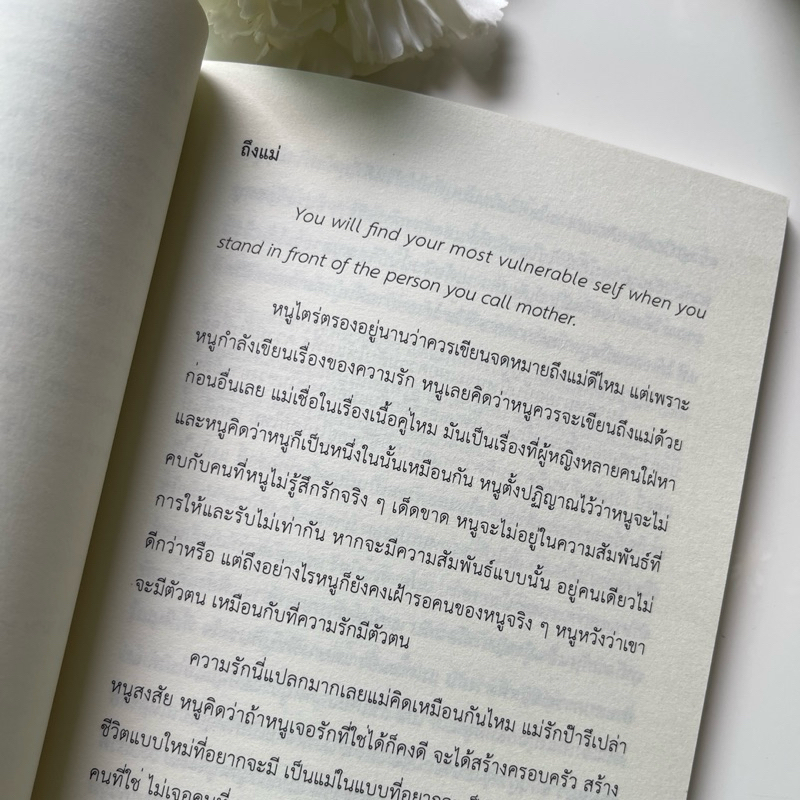 ถึงแม่
You will find your most vulnerable self when you
stand in front of the person you call mother.
หนูไตร่ตรองอยู่นานว่าควรเขียนจดหมายถึงแม่ดีไหม แต่เพราะ
หนูกำลังเขียนเรื่องของความรัก หนูเลยคิดว่าหนูควรจะเขียนถึงแม่ด้วย
ก่อนอื่นเลย แม่เชื่อในเรื่องเนื้อคู่ไหม มันเป็นเรื่องที่ผู้หญิงหลายคนใฝ่หา
และหนูคิดว่าหนูก็เป็นหนึ่งในนั้นเหมือนกัน หนูตั้งปฏิญาณไว้ว่าหนูจะไม่
คบกับคนที่หนูไม่รู้สึกรักจริง ๆ เด็ดขาด หนูจะไม่อยู่ในความสัมพันธ์ที่
การให้และรับไม่เท่ากัน หากจะมีความสัมพันธ์แบบนั้น อยู่คนเดียวไม่
ดีกว่าหรือ แต่ถึงอย่างไรหนูก็ยังคงเฝ้ารอคนของหนูจริง ๆ หนูหวังว่าเขา
จะมีตัวตน เหมือนกับที่ความรักมีตัวตน
ความรักนี่แปลกมากเลยแม่คิดเหมือนกันไหม แม่รักป๊ารึเปล่า
หนูสงสัย หนูคิดว่าถ้าหนูเจอรักที่ใช่ได้ก็คงดี จะได้สร้างครอบครัว สร้าง
ชีวิตแบบใหม่ที่อยากจะมี เป็นแม่ในแบบที่อยาก
คนที่ใช่ ไม่เจอคนที่